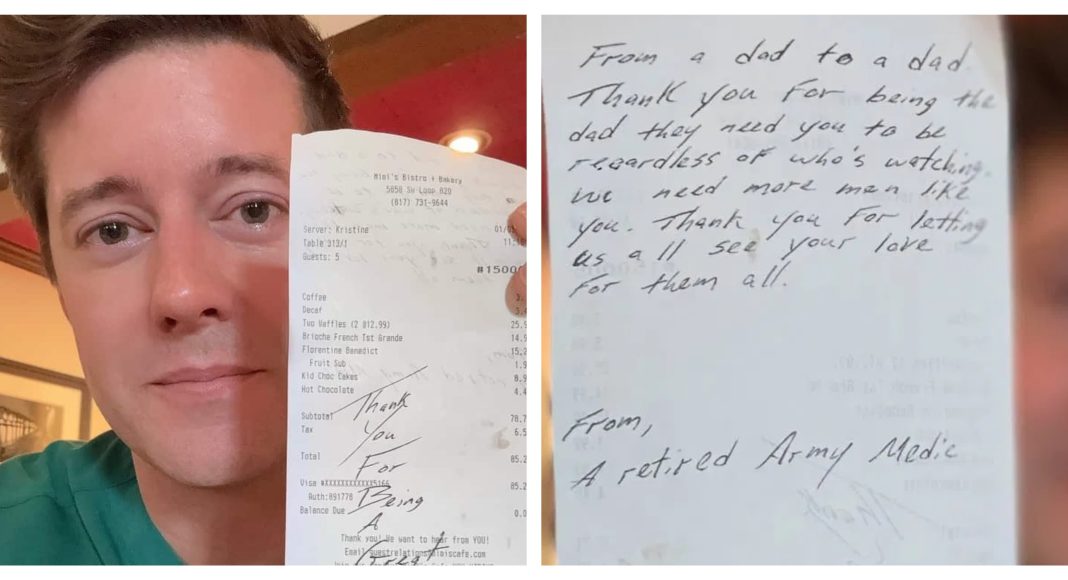 Mimi's Bistro + Bakery
5858 SW Loop 820
(817) 731-9644
Server: Kristine
Table 313/1
Guests: 5
#1500
Coffee
Decaf
Two Waffles (2 @12.99) 25.9
Brioche French Tst Grande 14.9
Florentine Benedict 15.2
Fruit Sub 1.9
Kid Choc Cakes 8.9
Hot Chocolate 4.4
Subtotal 78.7
Tax 6.5
Total 85.2
Visa #XXXXXXXXXXXX5166 85.2
Auth:891778
Balance Due 0.0
Thank
You
For
Being
A
Great
Thank you! We want to hear from YOU!
From a dad to a dad.
Thank you for being the
dad they need you to be
regardless of who's watching.
We need more men like
you. Thank you for letting
us all see your love
for them all.
From,
A retired Army Medic